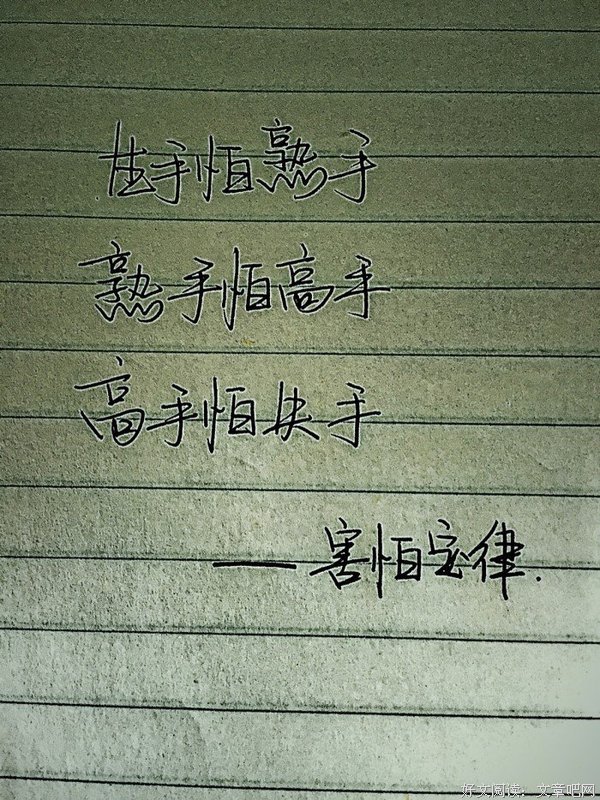 生手怕熟手
熟手怕高手
高手怕快手
——害怕定律.
好文阅读：文章吧网